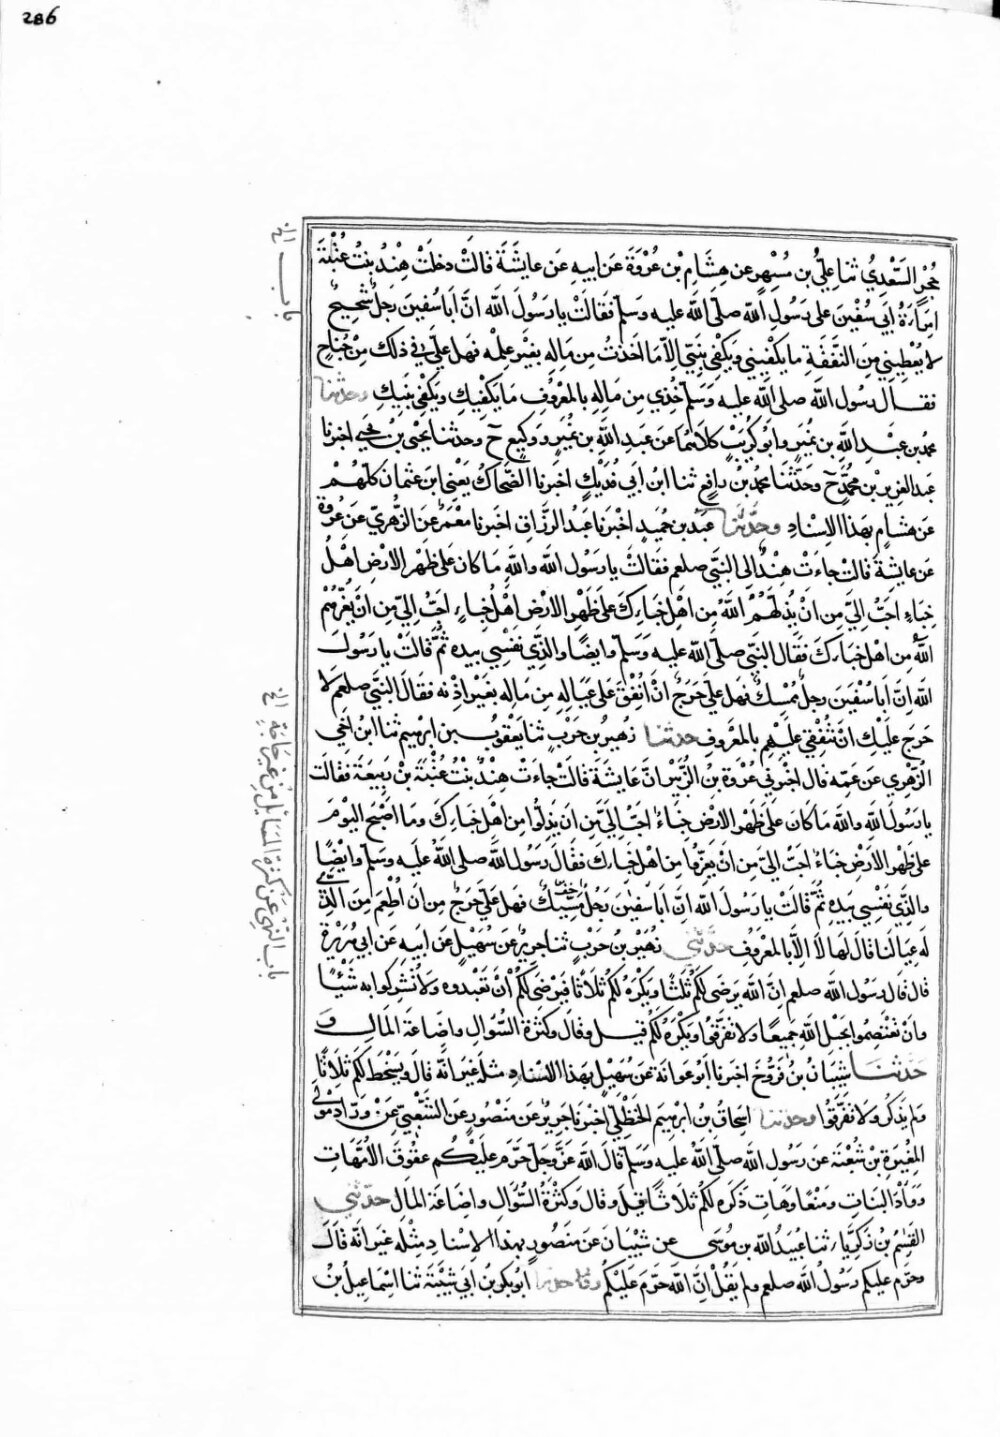 286
باب الخ
حُجْرٍ السَّعْدِيُّ ثنا عليُّ بن مُسْهِرٍ عن هِشَامِ بْنِ عُرْوَةَ عَنْ ابيهِ عَن عايشَةَ قالَتْ دخلَتْ هِنْدُ بنتُ عُتْبَةَ
امرَأةُ أبي سُفْيٰنَ على رَسُولِ الله صلّى الله عليه وسَلّم فقالَتْ يا رَسُولَ الله انَّ أبَا سُفيٰنَ رَجُلٌ شَحِيحٌ
لا يُعْطِينِي مِنَ النَّفَقَةِ ما يَكْفِيني ويَكْفِي بَنِيَّ الِاَّ ما اخَذْتُ مِن مَالِهِ بغَيْرِ عِلْمِه فهَل عليَّ في ذلك مِنْ جُنَاحٍ
فقال رسُول الله صلى الله عليه وَسَلّم خُذِي مِن مَالِهِ بالمَعْرُوفِ مَا يَكْفِيكِ ويَكْفِي بَنِيكِ وحدثنا
محمد بن عبْدِ اللهِ بن نُمَيرٍ وابوكُرَيْبٍ كلاهُمَا عَن عَبدِ اللهِ بن نُمَيرٍ ووَكِيعٍ ح وحدثنا يَحْيَى بن يَحيى اخبرنا
عبد العزيز بن مُحمَّدٍ ح وحَدَّثنَا محمدُ بن رافعٍ ثنا ابنُ ابي فُدَيْكٍ اخبَرنا الضَّحَاكُ يَعْنِى ابنَ عثمانَ كلّهُمْ
عَن هشامٍ بهَذا الاِسْنادِ وحَدَّثنا عبدُ بن حُمَيدٍ اخبَرنا عَبْدُ الرَّزاقِ اخبَرنا مَعْمَرٌ عَن الزُّهْرِيّ عَن عُرْوةَ
عَن عايشَةَ قالَتْ جاءَتْ هِنْدٌ إلَى النَّبيّ صلعم فقالَتْ يا رَسُول الله واللهِ مَا كان عَلَى ظَهْرِ الارْضِ اهْلُ
خِبَاءٍ احَبّ اِلَيَّ من انْ يُذِلّهُمُ اللهُ مِن اهْلِ خِبَاءِكَ عَلَى ظَهْرِ الارْضِ اهْلُ خِبَاءٍ احَبّ اِلَيَّ مِن انَ يُعزّهُمْ
اللهُ مِن اهْلِ خِبَاءِكَ فقَالَ النبيّ صلّى الله عليه وَسَلّم وايضًا والّذِي نَفْسِي بيدِه ثمّ قالَتْ يا رَسُولَ
الله انّ ابَا سُفْيٰنَ رجلٌ مُمْسِكٌ فهَل عليّ حَرَجٌ انْ اُنْفِقَ عَلى عِيَالِه مِن مَالِه بغَيْرِ اِذْنِه فقالَ النّبيّ صلعم لا
حَرَجَ عَليْكِ انْ تُنْفِقِي عليْهِم بالمَعْرُوفِ حدثنا زهَيرُ بن حَرْبٍ ثنا يَعقوبُ بن ابرهيم ثنا ابنُ اخي
الزّهْري عَن عَمّه قال اخبَرني عُرْوَة بن الزّبَيْرِ انّ عَايشَةَ قالَتْ جاءَتْ هِنْدٌ بنْتُ عُتْبَةَ بْنِ رَبِيعَةَ فقالَتْ
يا رَسُولَ اللهِ واللهِ مَا كَانَ عَلَى ظَهْرِ الارْضِ خِبَاءٌ احبّ الِيّ مِن ان يَذِلّوا مِن اهْلِ خِبَاءِكَ ومَا اَصْبَحَ اليَوْمَ
عَلى ظَهْرِ الارْضِ خِبَاءٌ احَبّ اِلَيّ مِن انْ يَعِزّوا مِن اهْلِ خِبَاءِكَ فقَالَ رَسُولُ اللهِ صلى اللهُ عليه وسلّم وايْضًا
والّذِي نَفْسِي بيَدِهِ ثُمّ قالَتْ يا رَسُولَ الله اِنّ ابَا سفيٰنَ رَجُلٌ مِسِّيكٌ فهَل عليّ حَرَجٌ مِن انَ اُطْعِمَ مِنَ الّذِي
لَه عِيَالَنَا قالَ لهَا لَا اِلاّ بالمَعْرُوفِ حدّثني زُهَيْرُ بْنُ حَرْبٍ ثنا جرِيرٌ عَن سُهَيْلٍ عَن ابِيهِ عَن ابي هُرَيْرةَ
قال قالَ رسُول الله صلعم انّ الله يَرضَى لَكُمْ ثلٰثًا ويَكْرَهُ لكُم ثلاثًا فيَرْضَى لَكُمْ أنْ تَعْبُدوه ولا تُشرِكوا به شَيْئًا
وانْ تَعْتَصِمُوا بحَبْلِ اللهِ جَميعًا ولا تفَرّقُوا ويَكْرَهُ لَكُمْ قيل وقالَ وكَثرَةَ السّؤالِ واضَاعَةَ المَالِ و
حَدّثنا شَيبَانُ بن فَرّوخَ اخبرَنا ابُو عَوانَةَ عَن سُهَيْلٍ بهَذا الاسْنادِ مثلَه غَيرَ انّه قالَ ويَسْخَطُ لكُم ثلاثًا
ولم يَذْكُر ولا تفَرّقُوا وحدثنا اسحاقُ بن ابرهيمَ الحَنْظَلِيّ اخبَرنا جَرِيرٌ عَن مَنْصُورٍ عَنِ الشّعْبِيّ عَنْ ورّادٍ مَوْلَى
المُغِيرَةِ بْنِ شُعْبَة عَن رَسُولِ الله صلّى اللهُ عليه وسَلّم قالَ الله عزّ وَجَلّ حَرّمَ عَلَيْكُم عقُوقَ الاُمّهَاتِ
ووَأدَ البَناتِ ومَنْعًا وهَاتِ وكَرِه لَكُم ثلاثًا قيلَ وقال وكَثْرةَ السّؤالِ واضَاعَة المَالِ حدّثني
القٰسِمُ بن زكَرِيّاءَ ثنا عُبيدُ الله بن مُوسَى عن شيْبَانَ عَن مَنصُورٍ بهذا الاسْنادِ مثْلَه غَيرَ انّه قالَ
وحَرّم عليكم رَسُولُ الله صلعم ولم يَقُلْ انّ اللهَ حَرّمَ عَلَيْكُمْ وحدثنا ابو بكر بن ابي شَيْبَةَ ثنا اسْمَاعيلُ بنُ
باب النهي عن كثرة المسايل من غير حاجة الخ